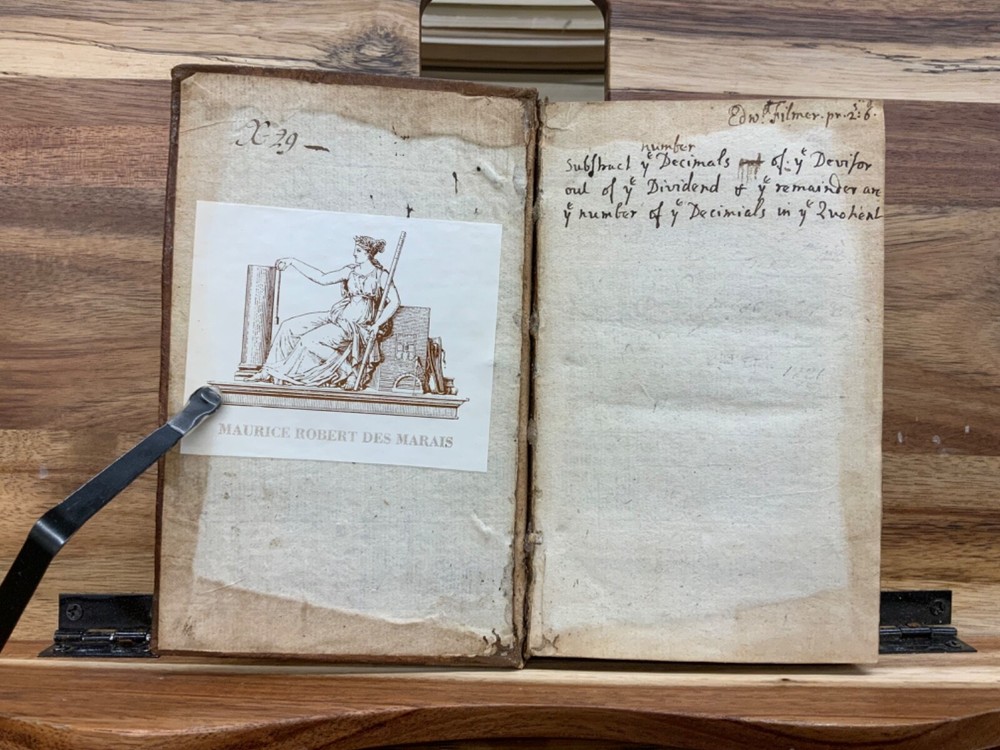 X 29
MAURICE ROBERT DES MARAIS
Edwᵈ Filmer. pr. 2ˢ: 6ᵈ.
number
Substract yᵉ Decimals of yᵉ Devisor
out of yᵉ Dividend & yᵉ remainder are
yᵉ number of yᵉ Decimials in yᵉ Quotient